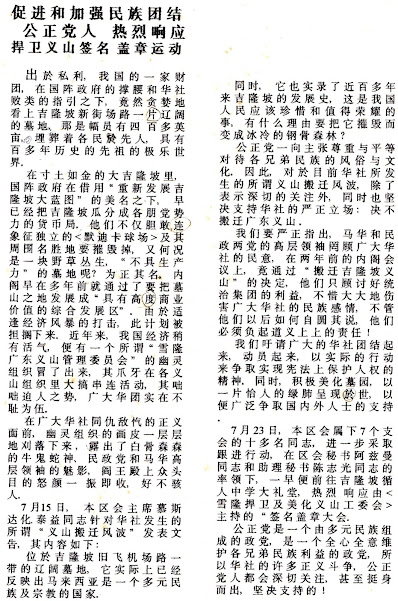 促进和加强民族团结
公正党人 热烈响应
捍卫义山签名盖章运动
出於私利，我国的一家财
团，在国阵政府的撑腰和华社
败类的指引之下，竟然贪婪地
看上吉隆坡新街场路一片辽阔
的墓地、那是幅员有四百多英
亩，埋葬着各民族先人，具有
百多年历史的先祖的极乐世
界。
在寸土如金的大吉隆坡里，
国阵政府在借用“重新发展吉
隆坡大蓝图”的美名之下，早
已经把吉隆坡瓜分成各朋党势
力的货币局，他们不仅胆敢连
象征独立的<默迪卡球场>及其
周围名胜地要摧毁掉，又何况
是一块野草丛生，“不具生产
力”的墓地呢？为正其名，内
阁早在多年前就通过了要把墓
山之地发展成“具有高度商业
价值的综合发展区”，由於适
逢经济风暴的打击，此计划被
担搁下来，近年来，我国经济稍
有活气，便有一个所谓“雪隆
广东义山管理委员会”的幽灵
组织冒了出来，其爪牙在各义
山组织里大搞串连活动，其咄
咄迫人之势，广大华团实在不
耻为伍。
在广大华社同仇敌忾的正义
面前，幽灵组织的画皮一层层
地刈落下来，露出了白骨森森
的牛鬼蛇神，民政党和马华高
层领袖的魅影，阎王殿上众头
目的怒颜一振即收，好不骇
人。
7月15日，本区会主席慕斯
达化.泰益同志针对华社发生的
所谓“义山搬迁风波”发表文
告，其内容如下：
位於吉隆坡旧飞机场路一
带的辽阔墓地，它实际上已经
反映出马来西亚是一个多元民
族及宗教的国家，
同时，它也实录了近百多年
来吉隆坡的发展史，这是我国
人民应该珍惜和值得荣耀的
事，有什么理由要把它摧毁而
变成冰冷的钢骨森林？
公正党一向主张尊重与平等
对待各兄弟民族的风俗与文
化，因此，对於目前华社所发
生的所谓义山搬迁风波，除了
表示深切的关注外，同时也坚
决支持华社的严正立场：决不
搬迁广东义山。
我们要严正指出，马华和民
政两党的高层领袖罔顾广大华
社的民意，在两年前的内阁会
议上，竟通过“搬迁吉隆坡义
山”的决定，他们只顾讨好统
治集团的利益，不惜大大地伤
害广大华社的民族感情，不管
他们以后如何自圆其说，他们
必须负起道义上的责任！
我们吁请广大的华社团结起
来，动员起来，以实际的行动
来争取实现宪法上保护人权的
精神，同时，积极美化墓园，以
一片怡人的绿肺呈现於世，以
便广泛争取国内外人士的支持
.
7月23日，本区会属下7个支
会的十多名同志，进一步采取
跟进行动，在区会秘书阿兹曼
同志和助理秘书陈志光同志的
率领下，一早便前往吉隆坡循
人中学大礼堂，热烈响应由<
雪隆捍卫及美化义山工委会>
主持的“签名盖章大会.
公正党是一个由多元民族组
成的政党，是一个全心全意维
护各兄弟民族利益的政党，所
以华社的许多正义斗争，公正
党人都会深切关注，甚至挺身
而出，坚决支持的！